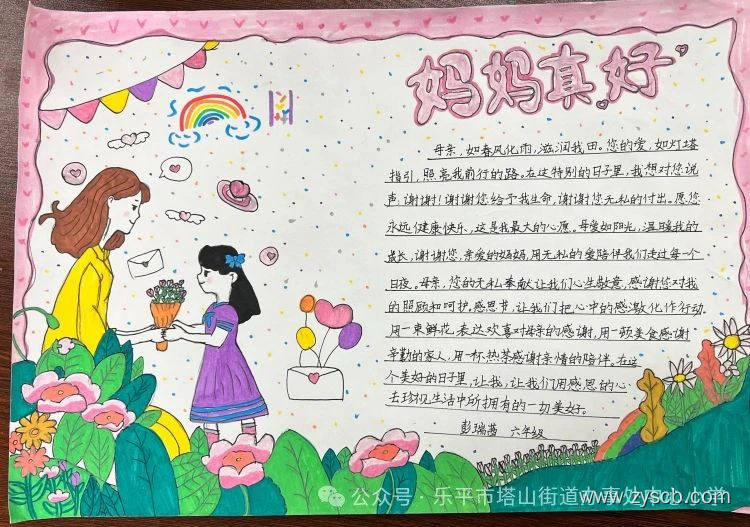 妈妈真好
母亲,如春风化雨,滋润我田。您的爱,如灯塔
指引,照亮我前行的路。在这特别的日子里,我想对您说
声:谢谢!谢谢您给予我生命,谢谢您无私的付出。愿您
永远健康快乐,这是我最大的心愿。母爱如阳光,温暖我的
成长,谢谢您,亲爱的妈妈,用无私的爱陪伴我们走过每一个
日夜。母亲,您的无私奉献让我们心生敬意,感谢您对我
的照顾和呵护。感恩节,让我们把心中的感激化作行动。
用一束鲜花,表达欢喜对母亲的感谢,用一顿美食感谢
辛勤的家人,用一杯热茶感谢亲情的陪伴。在这
个美好的日子里,让我,让我们用感恩的心
去珍视生活中所拥有的一切美好。
彭瑞茜 六年级
公众号·乐平市塔山街道办事处
小学
www.zyscb.com